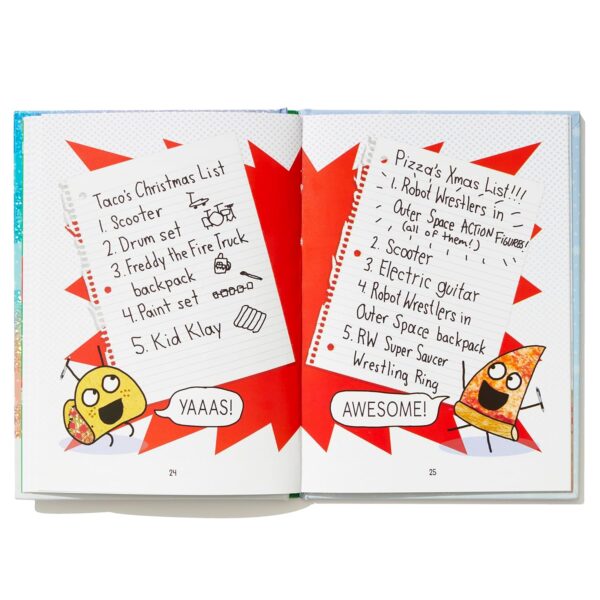 Taco's Christmas List
1. Scooter
2. Drum set
3. Freddy the Fire Truck
backpack
4. Paint set
5. Kid Klay
YAAAS!
24
Pizza's Xmas List!!!
1. Robot Wrestlers in
Outer Space ACTION FIGURES!
(all of them!)
2. Scooter
3. Electric guitar
4. Robot Wrestlers in
Outer Space backpack
5. RW Super Saucer
Wrestling Ring
AWESOME!
25